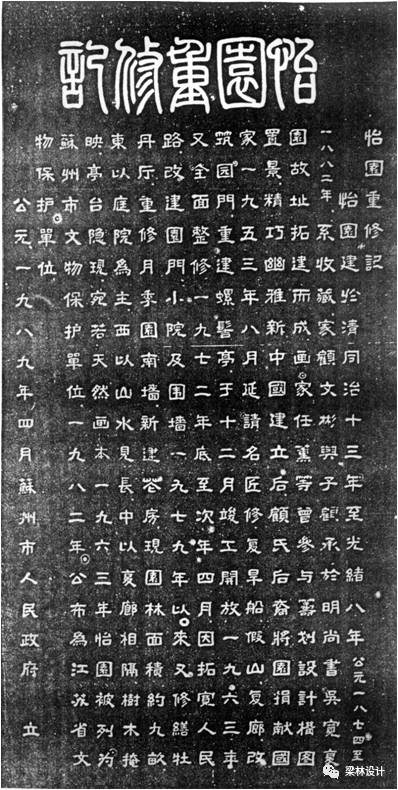 怡園重修記
怡園重修記
怡園建於清同治十三年至光緒八年公元一八七四至
一八八二年系收藏家顧文彬與子顧承於明尚書吳寬復
園故址拓建而成画家任薰等曾參与籌划設計構图
置景精巧幽雅新中國建立后顧氏后裔將園捐献國
家一九五三年八月延請名匠修复旱船假山复廊改
筑园門重建螺髻亭于十二月竣工開放一九六三年
又全面整修一九七二年底至次年四月因拓宽人民
路改建園門小院及围墙一九七九年以來又修缮牡
丹厅重修月季園南墙新建花房現園林面積約九畝
東以庭院為主西以山水見長中以复廊相隔樹木掩
映亭台隐現宛若天然画本一九六三年怡園被列为
蘇州市文物保护單位一九八二年公布為江苏省文
物保护單位
公元一九八九年四月蘇州市人民政府立
梁林设计